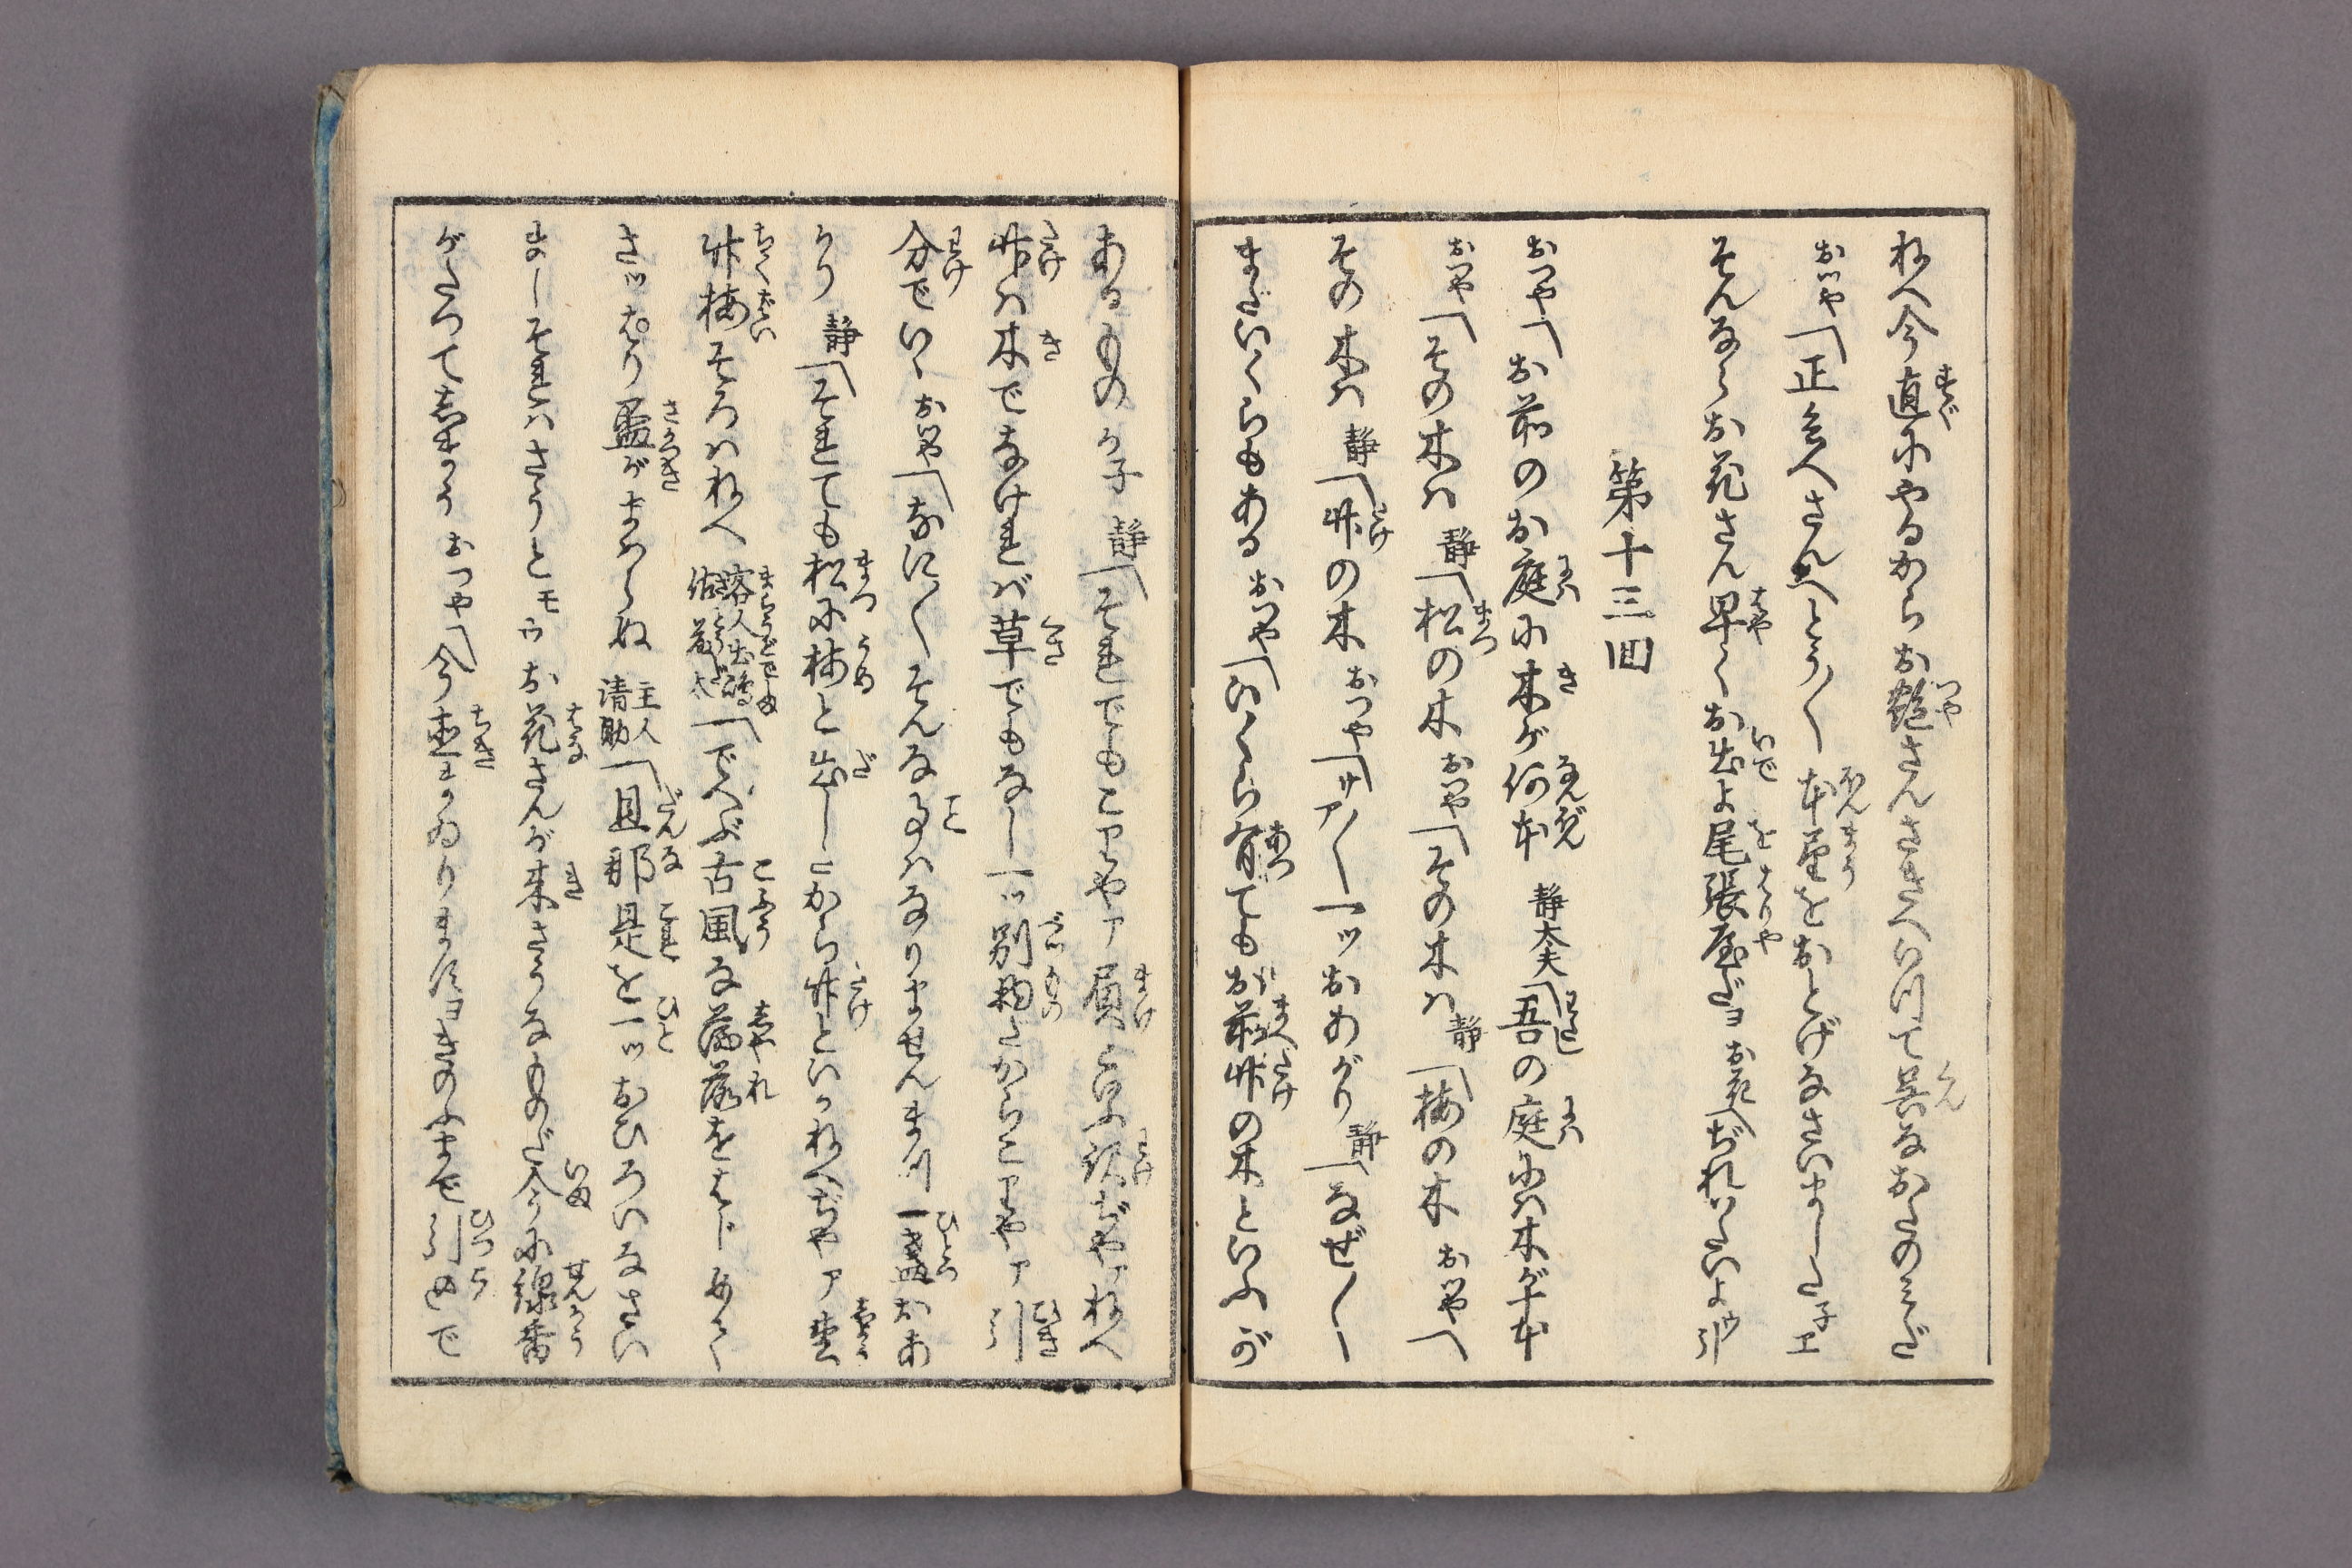 ねへ今直にやるからお艶さんさきへいつて呉なおたのみだ
おつや「正公へさんへとう〳〵本望をおとげなさいましたネエ
そんならお花さん早くお出よ尾張屋だヨお花「ぢれツたいよウ引
第十三回
おつや「お前のお庭に木が何本静太夫「吾の庭には木が十本
おつや「その木は静「松の木おつや「その木は静「梅の木おつや「
その木は静「竹の木おつや「サア〳〵一ツおあがり静「なぜ〳〵
まだいくらもあるおつや「いくら有てもお前竹の木といふが
あるものか子静「それでもこりやア屓といふ訳ぢやアねへ
竹は木でなければ草でもなし一ツ別物だからこりやア引
分でいゝおつや「なに〳〵そんな事はなりません まづ一盞おあ
がり静「それでも松に梅と出したから竹といはねへぢやア松
竹梅そろはねへ客人出嶋佐藤太「でへぶ古風な洒落をはじめて
さツぱり盃がまはらぬ主人清助「旦那是を一ツおひろいなさい
ましそれはさうとモウお花さんが来さうなものだ今に線香
がたつてしまうおつや「今直まゐりますヨきのふまで引つゞきで